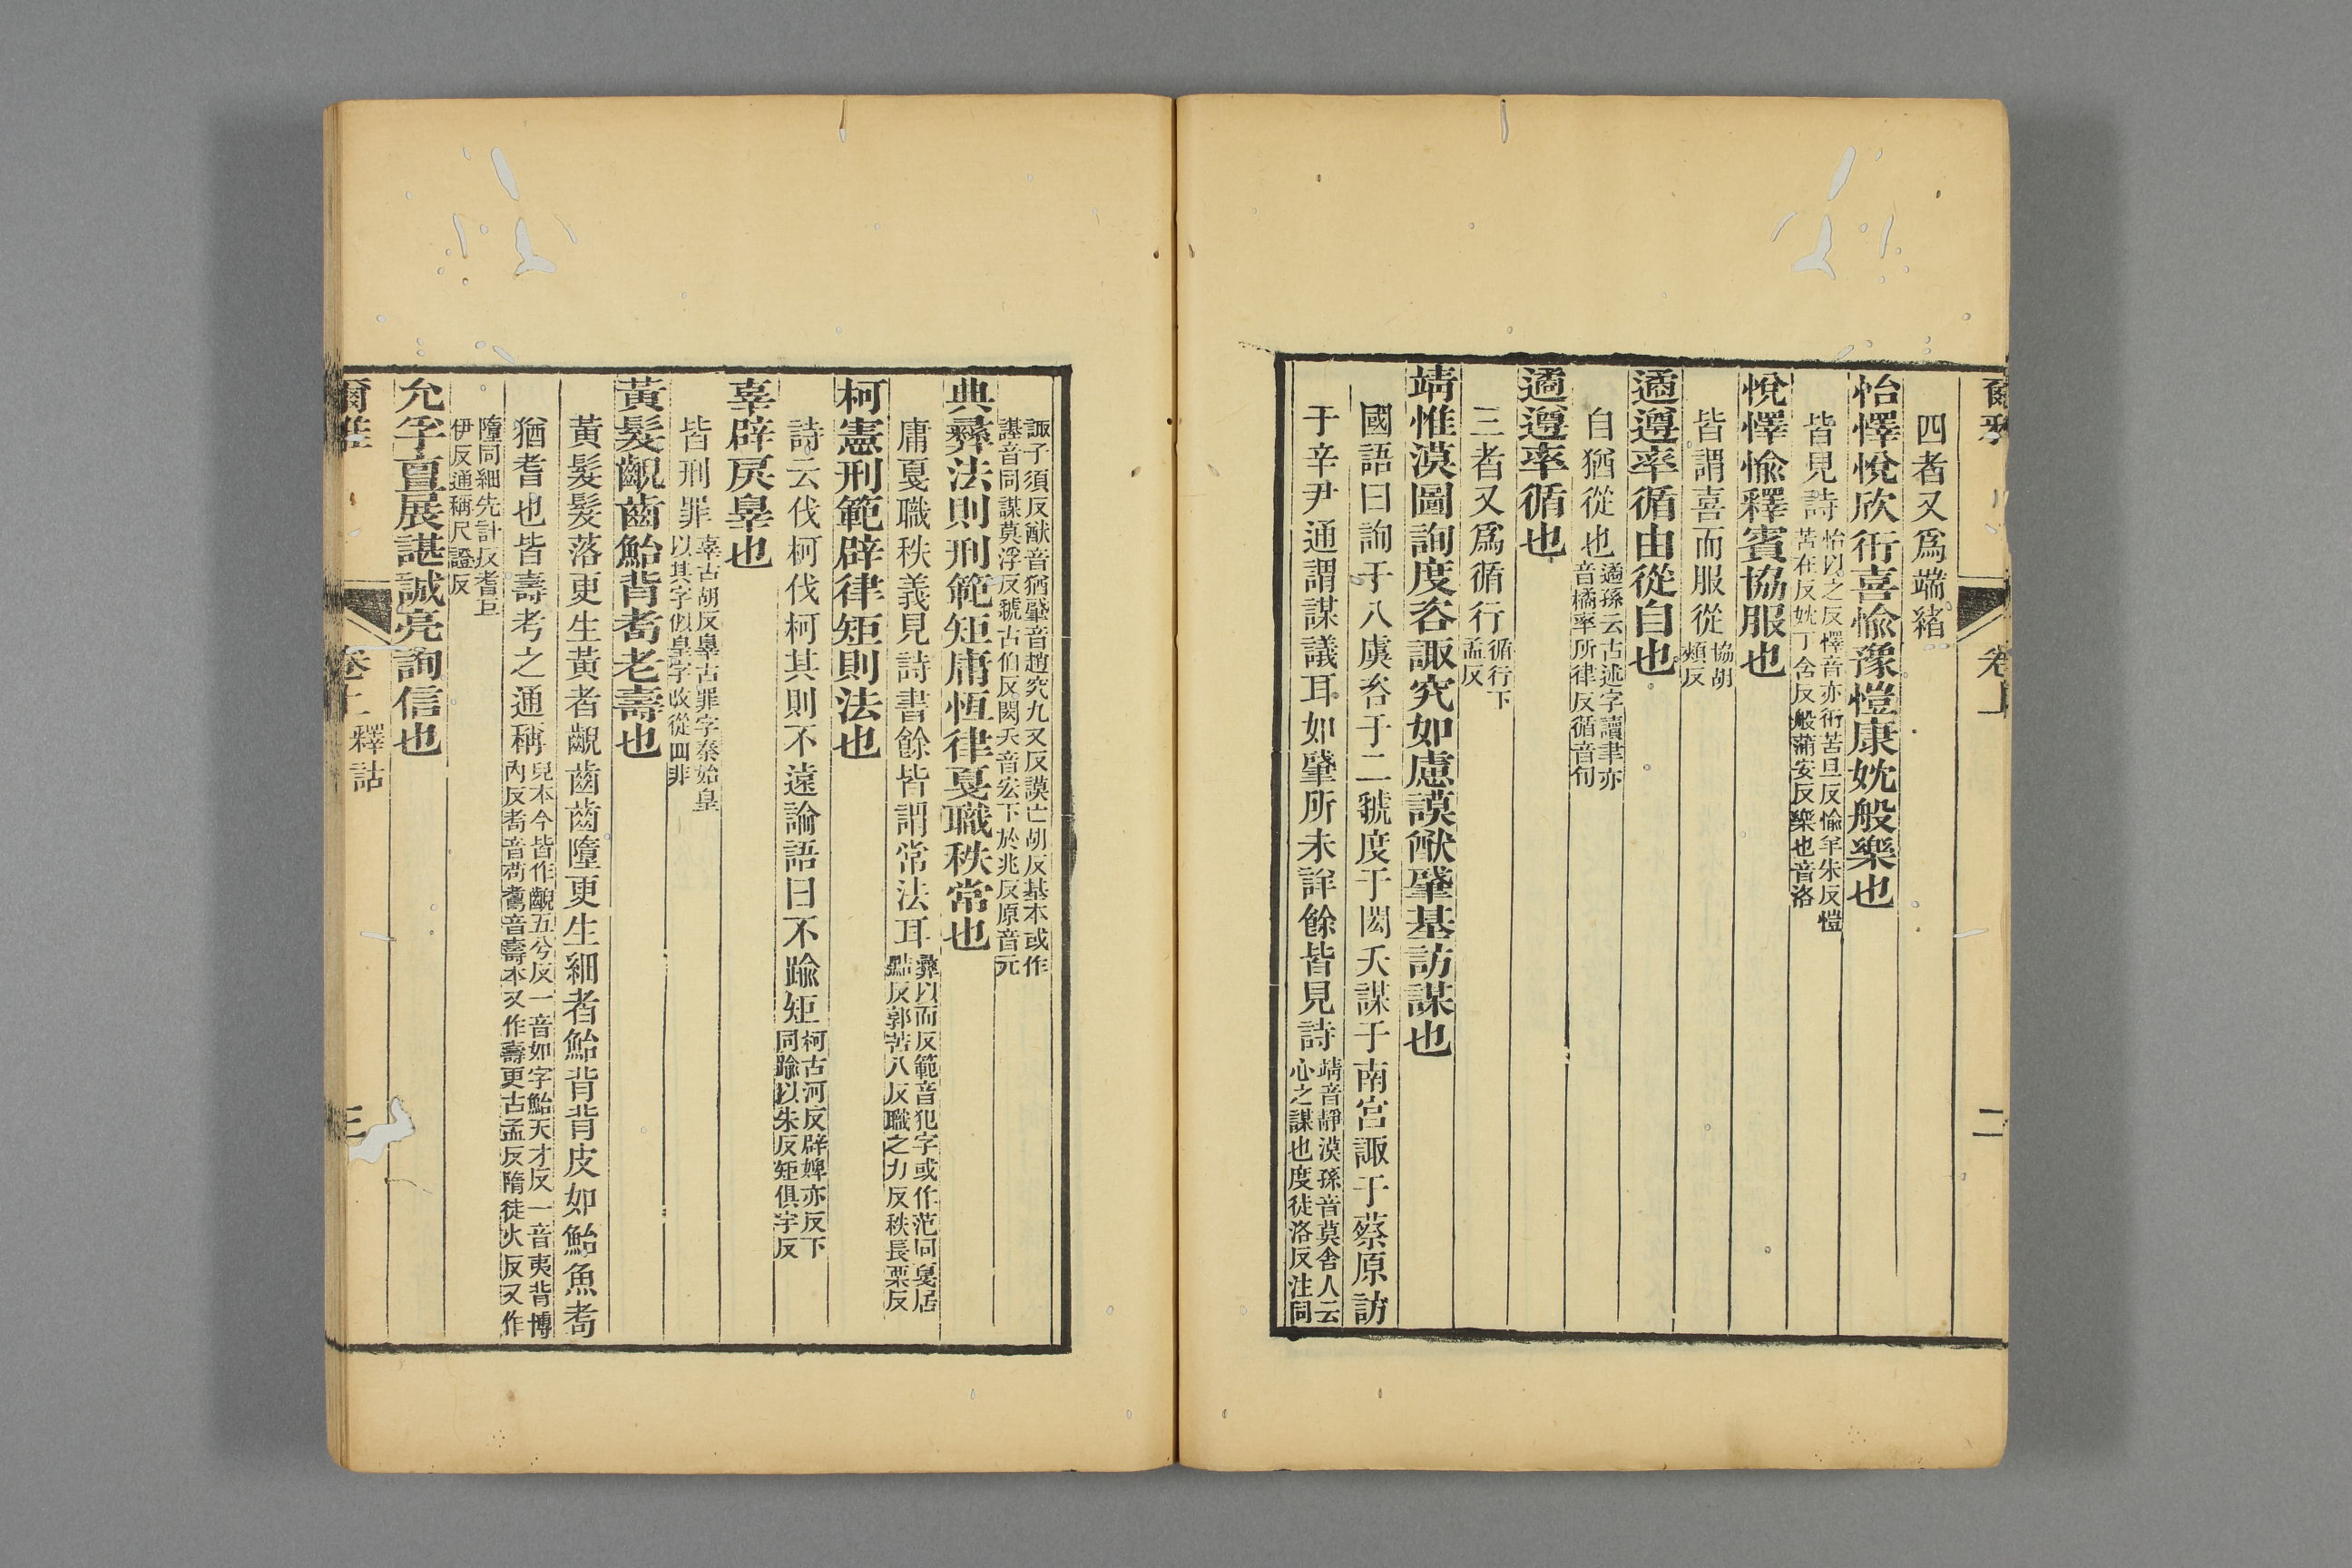 爾雅 卷上 二
四者又爲端緒
怡懌悅欣衎喜愉豫愷康妉般樂也
皆見詩
怡以之反懌音亦衎苦旦反愉羊朱反愷
苦在反妉丁含反般蒲安反樂也音洛
悅懌愉釋賓協服也
皆謂喜而服從
協胡
頰反
遹遵率循由從自也
自猶從也
遹孫云古述字讀聿亦
音橘率所律反循音旬
遹遵率循也
三者又爲循行
循行下
孟反
靖惟漠圖詢度咨諏究如慮謨猷肇基訪謀也
國語曰詢于八虞咨于二虢度于閎夭謀于南宮諏于蔡原訪
于辛尹通謂謀議耳如肇所未詳餘皆見詩
靖音靜漠孫音莫舍人云
心之謀也度徒洛反注同
諏子須反猷音猶肇音趙究九又反謨亡胡反基本或作
諅音同謀莫浮反虢古伯反閎夭音宏下於兆反原音元
典彝法則刑範矩庸恆律戛職秩常也
庸戛職秩義見詩書餘皆謂常法耳
彝以而反範音犯字或作范同戛居
黠反郭苦八反職之力反秩長栗反
柯憲刑範辟律矩則法也
詩云伐柯伐柯其則不遠論語曰不踰矩
柯古河反辟婢亦反下
同踰以朱反矩俱宇反
辜辟戾辠也
皆刑罪
辜古胡反辠古罪字秦始皇
以其字似皇字改從四非
黃髮齯齒鮐背耇老壽也
黃髮髮落更生黃者齯齒齒墮更生細者鮐背背皮如鮐魚耇
猶耆也皆壽考之通稱
兒本今皆作齯五兮反一音如字鮐天才反一音夷背博
內反耇音苟耈音壽本又作壽更古孟反隋徒火反又作
墮同細先計反耆巨
伊反通稱尺證反
允孚亶展諶誠亮詢信也
爾雅 卷上 釋詁 三